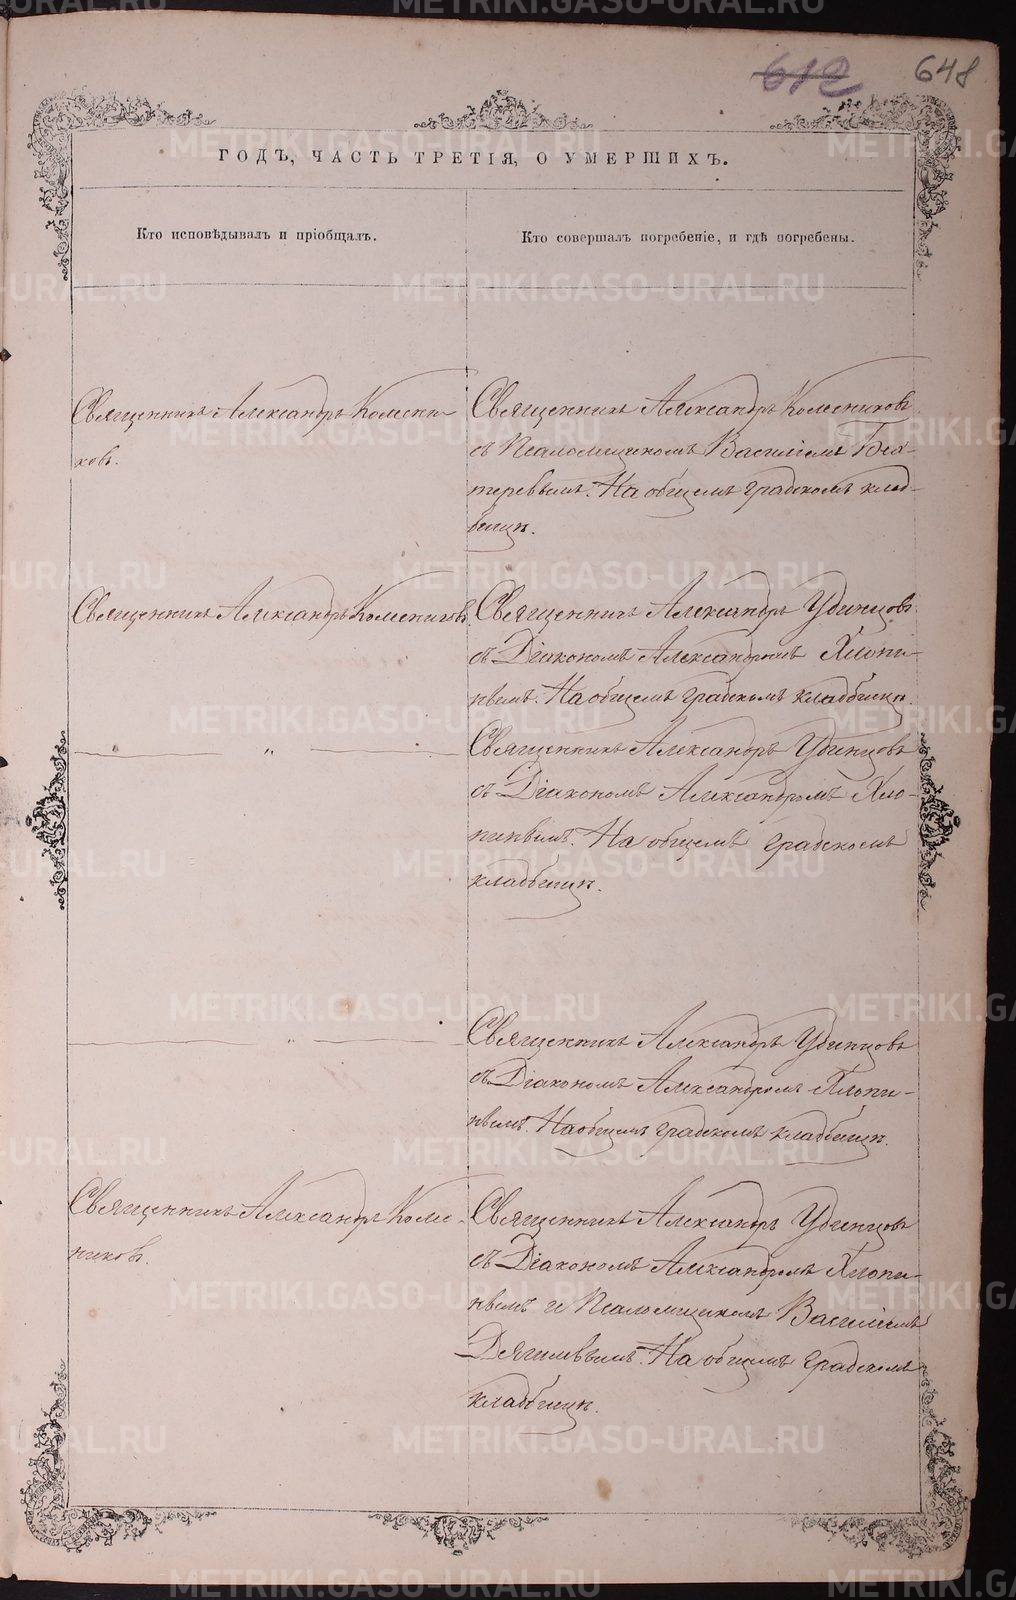 612 648
ГОДЪ, ЧАСТЬ ТРЕТІЯ, О УМЕРШИХЪ.
Кто исповѣдывалъ и пріобщалъ.
Кто совершалъ погребеніе, и гдѣ погребены.
Священникъ Александръ Колесни-
ковъ.
Священникъ Александръ Колесниковъ
съ Псаломщикомъ Василіемъ
На общемъ градскомъ клад-
бищѣ.
Священникъ Александръ Колесниковъ
Священникъ Александръ Удинцовъ
съ Діакономъ Александромъ Хлопи-
нымъ. На общемъ градскомъ кладбищѣ.
— „ —
Священникъ Александръ Удинцовъ
съ Діакономъ Александромъ Хло-
пинымъ. На общемъ градскомъ
кладбищѣ.
— „ —
Священникъ Александръ Удинцовъ
съ Діакономъ Александромъ Хлопи-
нымъ. На общемъ градскомъ кладбищѣ.
Священникъ Александръ Колес-
никовъ.
Священникъ Александръ Удинцовъ
съ Діакономъ Александромъ Хлопи-
нымъ и Псаломщикомъ Василіемъ
Дягилевымъ. На общемъ градскомъ
кладбищѣ.
METRIKI.GASO-URAL.RU